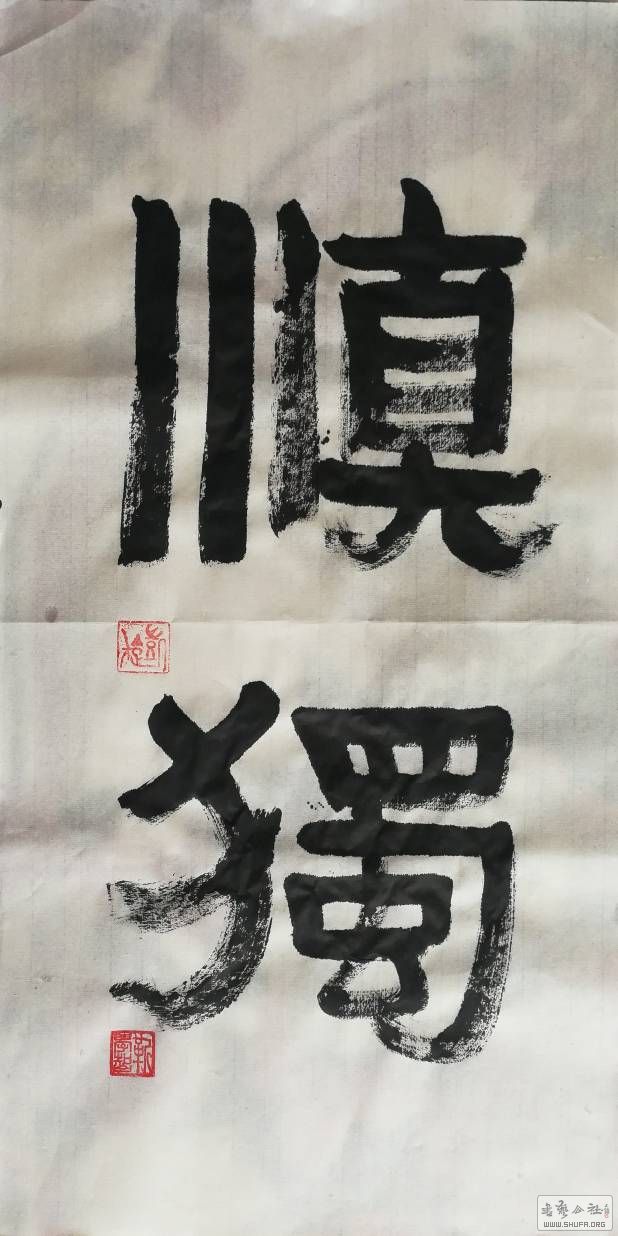 慎獨
書藝公社
WWW.SHUFA.ORG